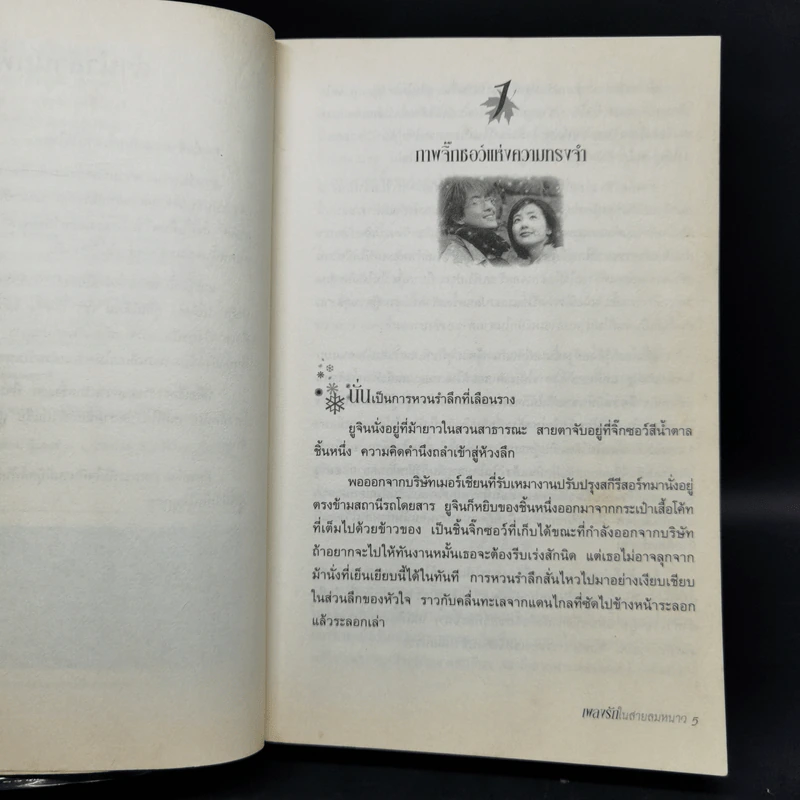 1
ภาพจิ๊กซอว์แห่งความทรงจำ
นั่นเป็นการหวนรำลึกที่เลือนราง
ยูจินนั่งอยู่ที่ม้ายาวในสวนสาธารณะ สายตาจับอยู่ที่จิ๊กซอว์สีน้ำตาล
ชิ้นหนึ่ง ความคิดคำนึงถลำเข้าสู่ห้วงลึก
พอออกจากบริษัทเมอร์เชียนที่รับเหมางานปรับปรุงสกีรีสอร์ทมานั่งอยู่
ตรงข้ามสถานีรถโดยสาร ยูจินก็หยิบของชิ้นหนึ่งออกมาจากกระเป๋าเสื้อโค้ท
ที่เต็มไปด้วยข้าวของ เป็นชิ้นจิ๊กซอว์ที่เก็บได้ขณะที่กำลังออกจากบริษัท
ถ้าอยากจะไปให้ทันงานหมั้นเธอจะต้องรีบเร่งสักนิด แต่เธอไม่อาจลุกจาก
ม้านั่งที่เย็นเยียบนี้ได้ในทันที การหวนรำลึกสั่นไหวไปมาอย่างเงียบเชียบ
ในส่วนลึกของหัวใจ ราวกับคลื่นทะเลจากแดนไกลที่ซัดไปข้างหน้าระลอก
แล้วระลอกเล่า
เพลงรักในสายลมหนาว 5